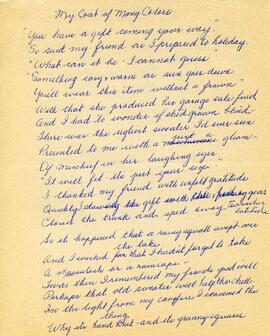 My Coat of Many Colors
"You have a gift coming your way"
So said my friend as I prepared to holiday.
"What can it be - I cannot guess"
"Something cosy & warm as sun goes down
You'll wear this item without a frown"
With that she produced her garage sale find
And I had to wonder if she'd grown blind -
There was the ugliest sweater I'd ever seen
Presented to me with a just gleam -
Of mischief in her laughing eyes
"It will fit - its just your size"
I thanked my friend with gratitude
Quickly the gift with gear
Closed the trunk and sped away
So it happened that a rainy squall swept over
the lake
And I wished for that I hadn't forgot to take
A mackintosh or a raincape -
Twas then I remembered my friend's good will
Perhaps that old sweater will help the chill
In the light from my campfire I examined the
thing
Why its hand knit - and its granny squares